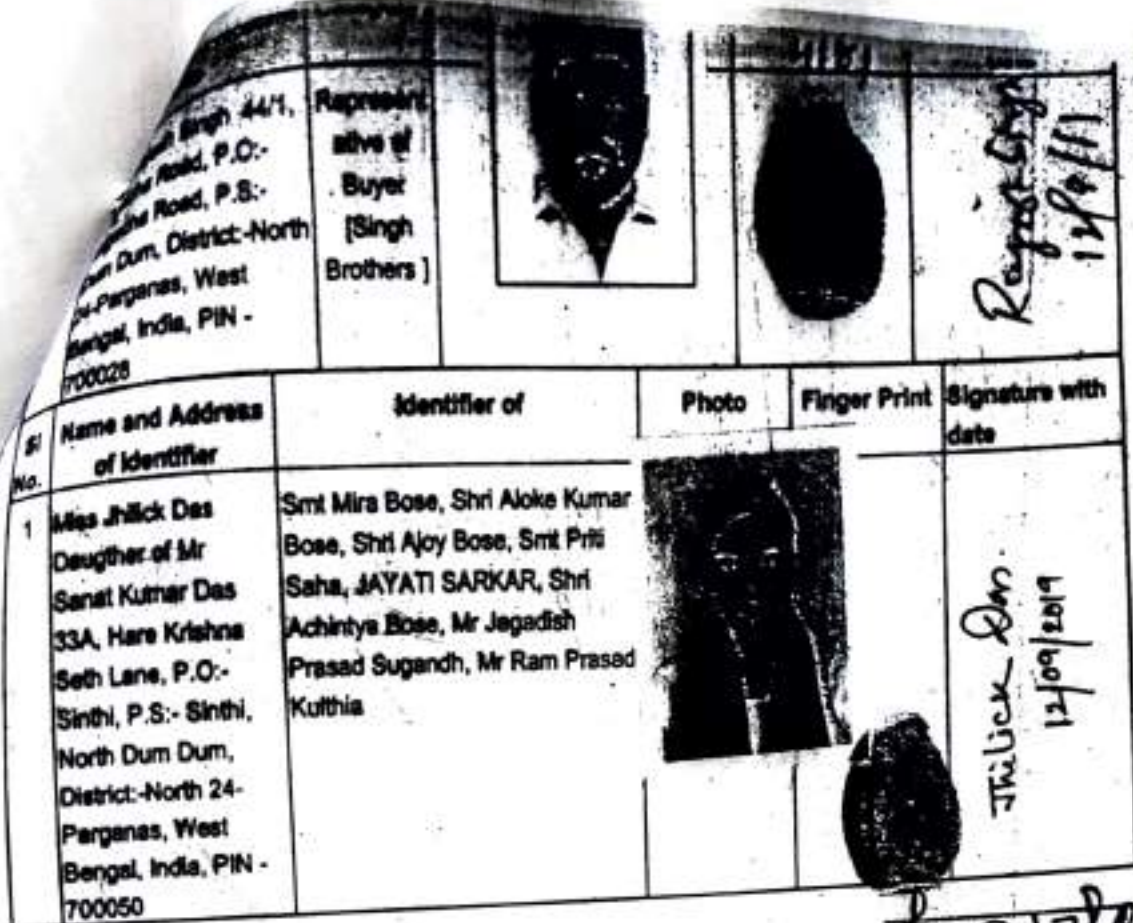 Singh 44/1,
Road, P.O:-
Road, P.S:-
Dum, District:-North
24-Parganas, West
Bengal, India, PIN -
700028
Represent
ative of
Buyer
[Singh
Brothers ]
Sl
No.
Name and Address
of Identifier
Identifier of
Photo
Finger Print
Signature with
date
1
Miss Jhilick Das
Daugther of Mr
Sanat Kumar Das
33A, Hare Krishna
Seth Lane, P.O:-
Sinthi, P.S:- Sinthi,
North Dum Dum,
District:-North 24-
Parganas, West
Bengal, India, PIN -
700050
Smt Mira Bose, Shri Aloke Kumar
Bose, Shri Ajoy Bose, Smt Priti
Saha, JAYATI SARKAR, Shri
Achintya Bose, Mr Jagadish
Prasad Sugandh, Mr Ram Prasad
Kulthia
Jhilick Das
12/09/2019